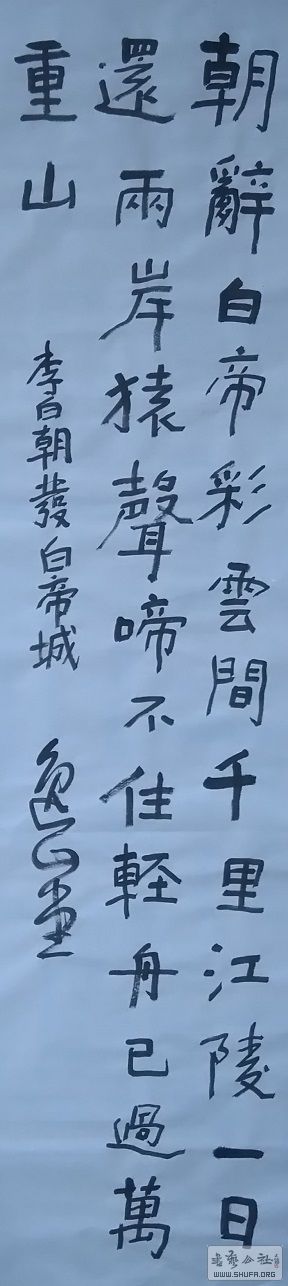 朝辭白帝彩雲間千里江陵一日
還兩岸猿聲啼不住輕舟已過萬
重山
李白朝發白帝城
逸山堂
書藝公社
WWW.SHUFA.ORG